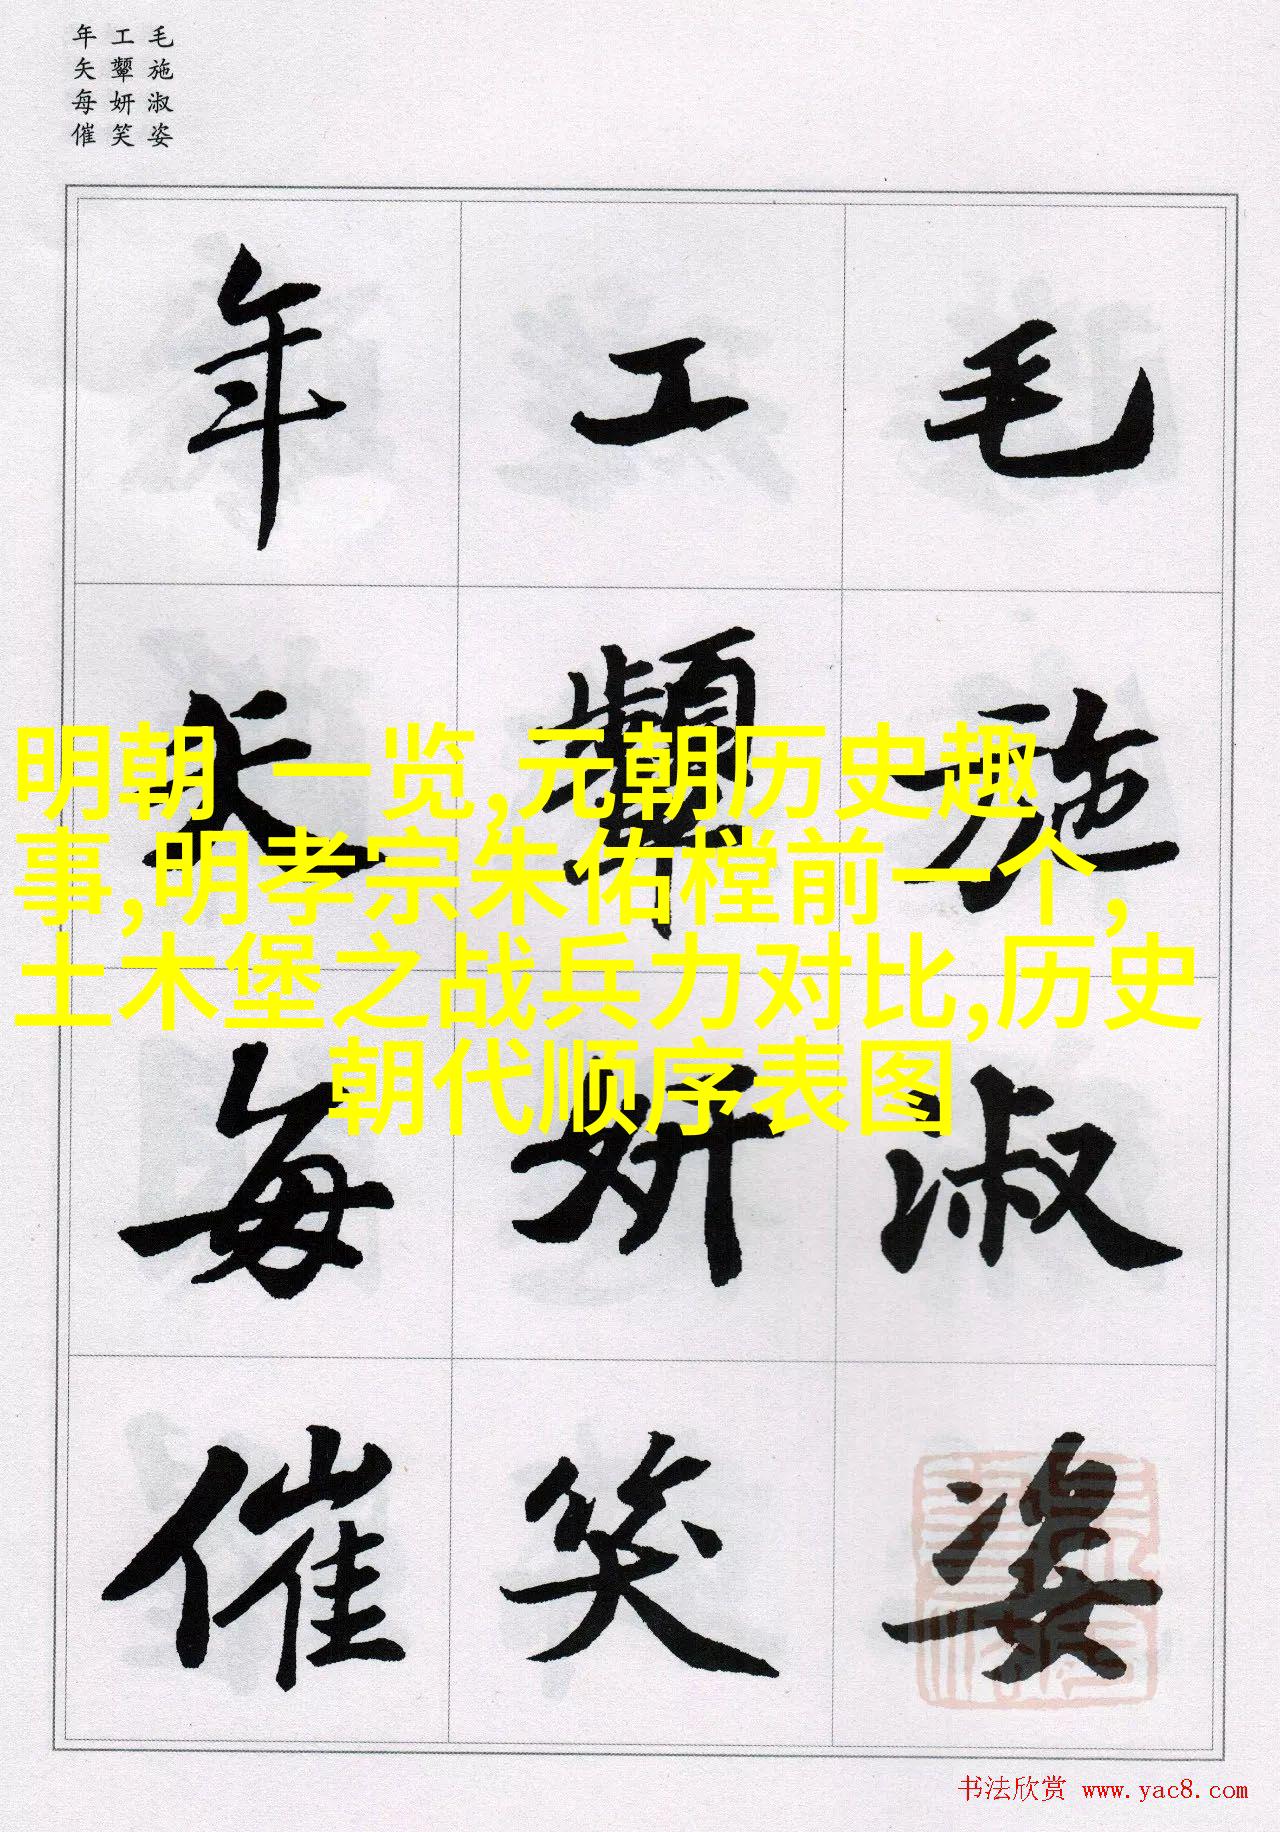 毛施淑姿
工颦妍笑
年矢每催
毛施淑姿
工颦妍笑
年矢每催
明朝 一览,元朝历史趣
事,明孝宗朱佑樘前一个,
土木堡之战兵力对比,历史
朝代顺序表图
书法欣赏 www.yac8.com